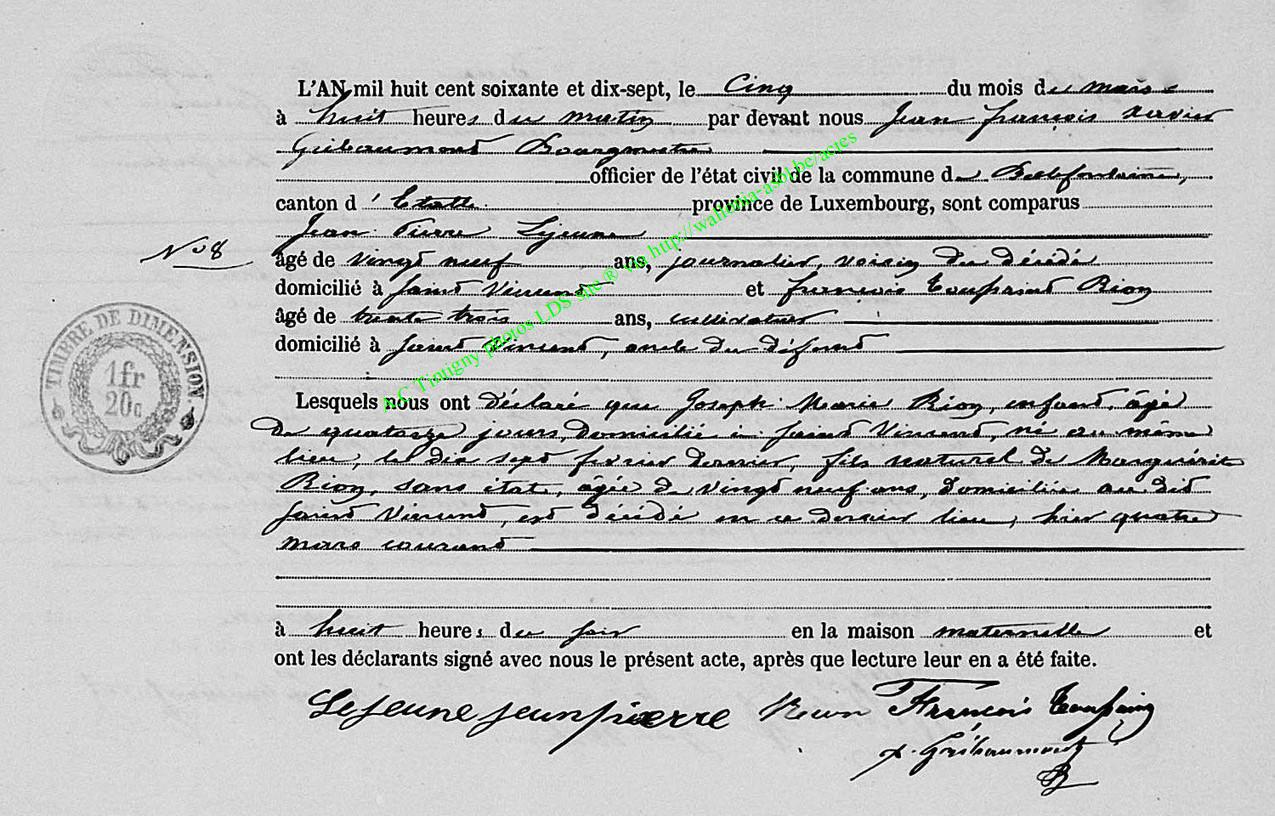 L'AN mil huit cent soixante et dix-sept, le Cinq du mois de mars
à huit heures du matin par devant nous Jean François Xavier
Gribaumont Bourgmestre
officier de l'état civil de la commune de Bellefontaine,
canton d'Etalle province de Luxembourg, sont comparus
Jean Pierre Lejeune
N° 8
âgé de vingt neuf ans, journalier, voisin du décédé
domicilié à Saint Vincent et François Toussaint Rion
âgé de trente trois ans, cultivateur
domicilié à Saint Vincent, oncle du défunt
TIMBRE DE DIMENSION
1fr
20c
Lesquels nous ont déclaré que Joseph Marie Rion, enfant, âgé
de quatorze jours, domicilié à Saint Vincent, né au même
lieu, le dix sept février dernier, fils naturel de Marguérite
Rion, sans état, âgée de vingt neuf ans, domiciliée au dit
Saint Vincent, est décédé en ce dernier lieu, hier quatre
mars courant
à huit heures du soir en la maison maternelle et
ont les déclarants signé avec nous le présent acte, après que lecture leur en a été faite.
Lejeune jeanpierre Rion François Toussaint
Gribaumont
A.C Tintigny photos LDS site ® via http://wallonia-asbl.be/actes